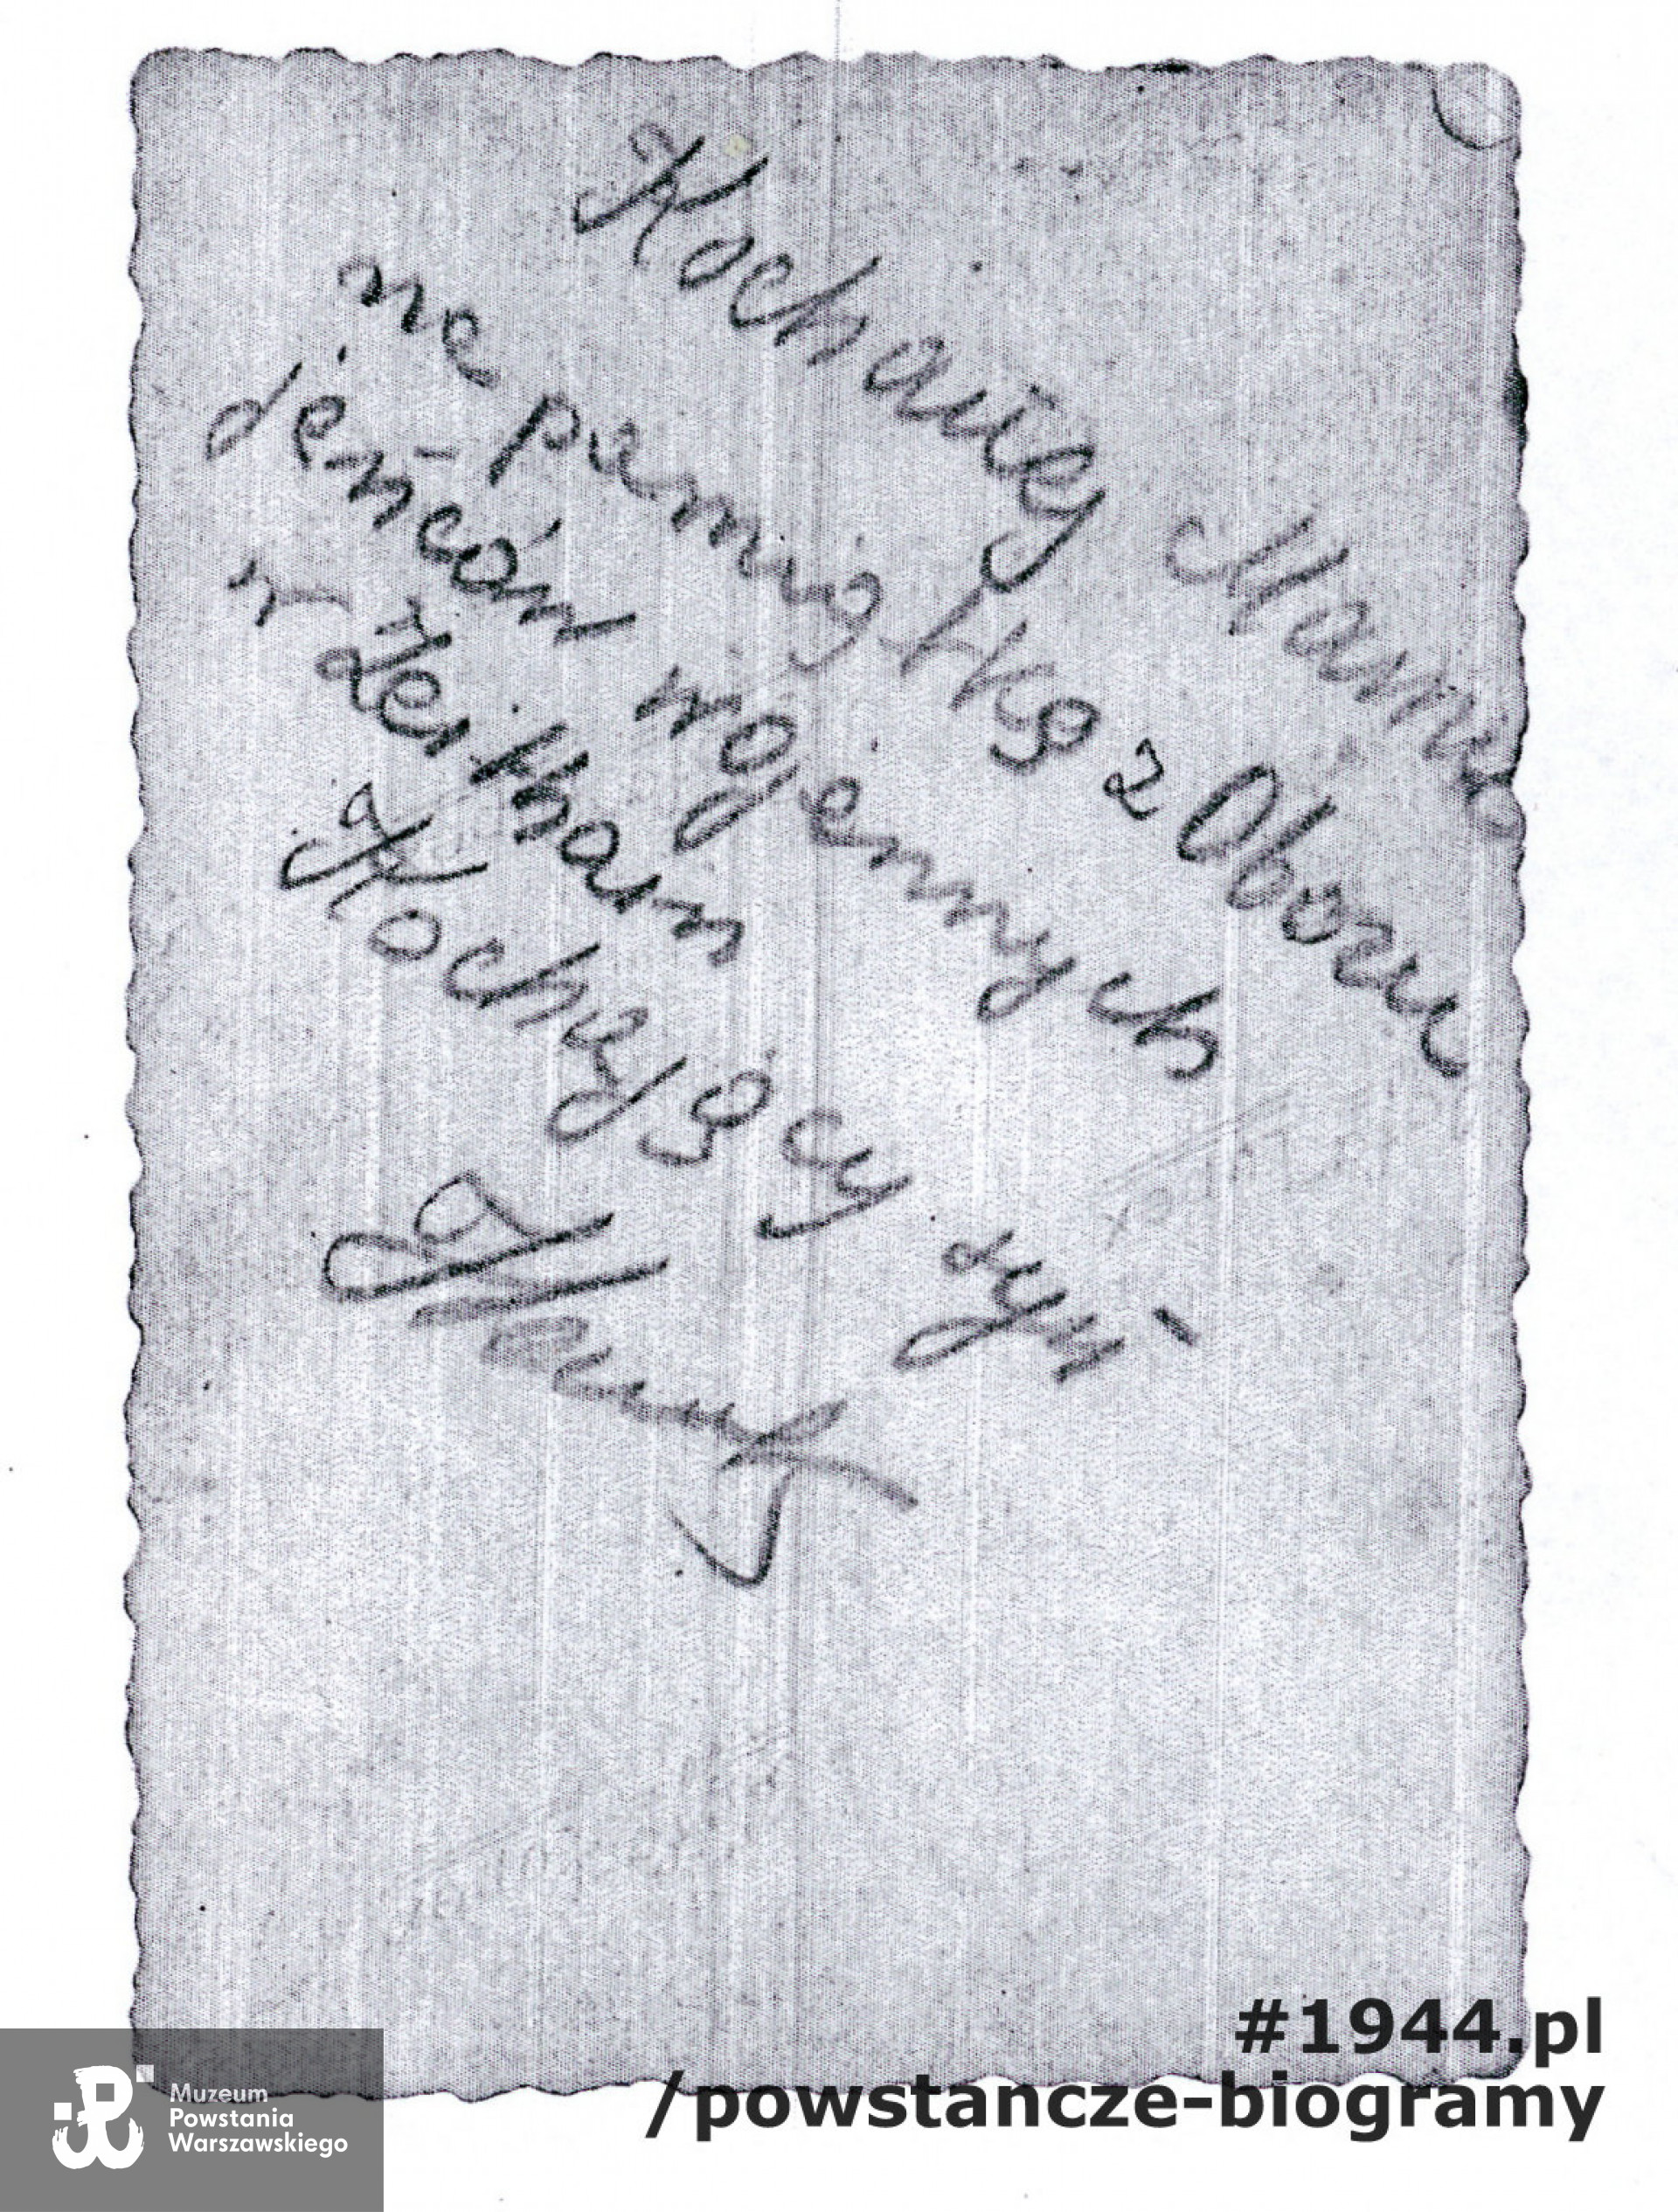 Kochanej Mamie
na pamiątkę z Obozu
jeńców wojennych
w Zeithain
Kochający syn
#1944.pl
/powstancze-biogramy
Muzeum
Powstania
Warszawskiego